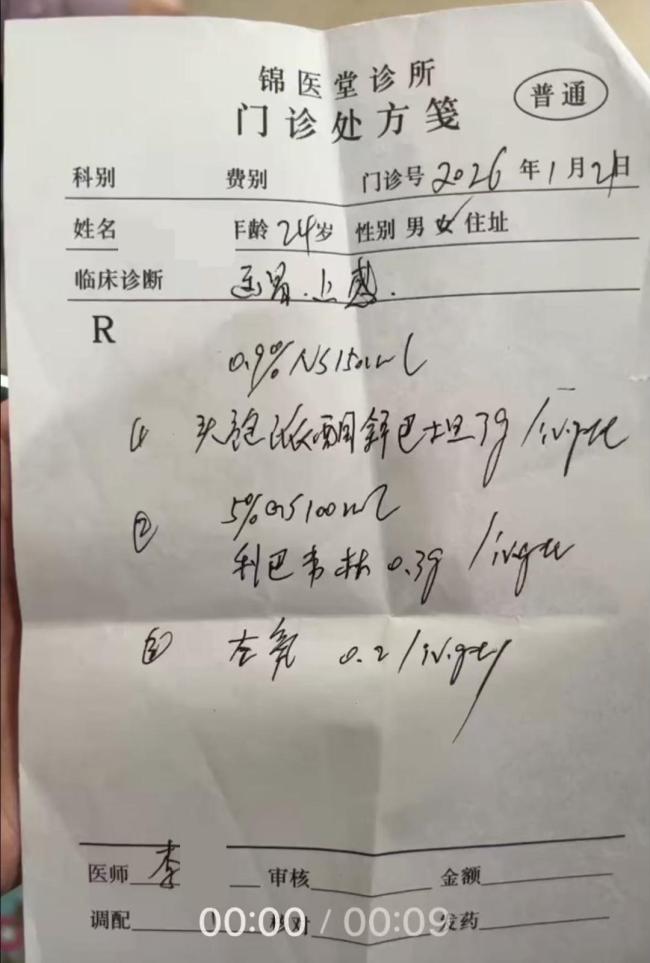 锦医堂诊所
门诊处方笺
普通
科别 费别 门诊号 2026 年 1 月 21 日
姓名 年龄 24 岁 性别 男 女 住址
临床诊断 上感.
R
0.9% NS 150ml
① 头孢哌酮舒巴坦 3g / iv.gtt
② 5% GS 100ml
利巴韦林 0.3g / iv.gtt
③ 左氧 0.2 / iv.gtt
医师 李 审核 金额
调配 核对 发药
00:00 / 00:09